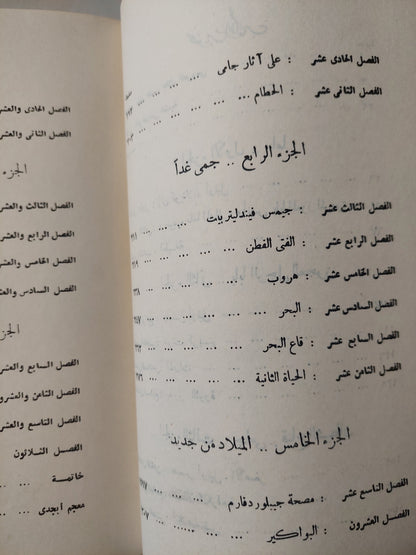 الفصل الحادى عشر : على آثار جامى ... ...
الفصل الثانى عشر : الحطام ... ... ... ... ...
الجزء الرابع .. جمى غداً
الفصل الثالث عشر : جيمس فيندليتريت ... ... ...
الفصل الرابع عشر : الفتى الفطن ... ... ... ...
الفصل الخامس عشر : هروب ... ... ... ... ...
الفصل السادس عشر : البحر ... ... ... ... ...
الفصل السابع عشر : قاع البحر ... ... ... ...
الفصل الثامن عشر : الحياة الثانية ... ... ... ...
الجزء الخامس .. الميلاد من جديد
الفصل التاسع عشر : مصحة جيبلوردفارم ... ...
الفصل العشرون : البواكير ... ... ... ...
الفصل الحادى والعشر
الفصل الثانى والعشر
الجزء
الفصل الثالث والعشر
الفصل الرابع والعشر
الفصل الخامس والعشر
الفصل السادس والعشر
الجز
الفصل السابع والعشر
الفصل الثامن والعشرون
الفصل التاسع والعشر
الفصل الثلاثون
خاتمة ... ...
معجم ابجدى ... ...